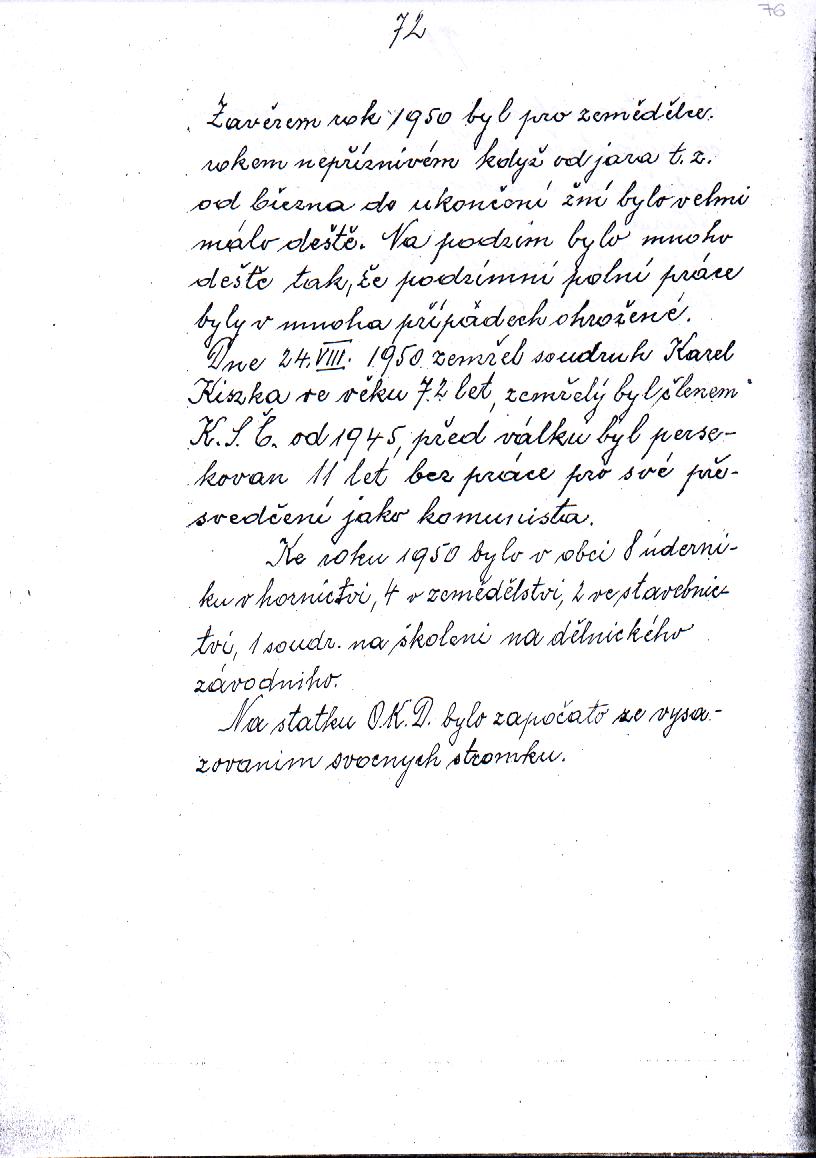 76
72
Závěrem rok 1950 byl pro zemědělce.
rokem nepříznivém když od jara t.z.
od března do ukončení žní bylo velmi
málo deště. Na podzim bylo mnoho
deště tak, že podzimní polní práce
byly v mnoha případech ohrožené.
Dne 24.VIII. 1950 zemřel soudruh Karel
Kiszka ve věku 72 let, zemřelý byl členem
K.S.Č. od 1945, před válkú byl perse-
kovan 11 let bez práce pro své pře-
svedčení jako komunista.
Ke roku 1950 bylo v obci 8 úderni-
ku v hornictvi, 4 v zemědělstvi, 2 ve stavebnic-
tvi, 1 soudr. na školeni na dělnického
závodniho.
Na statku O.K.D. bylo započato ze vysa-
zovanim ovocnych stromku.